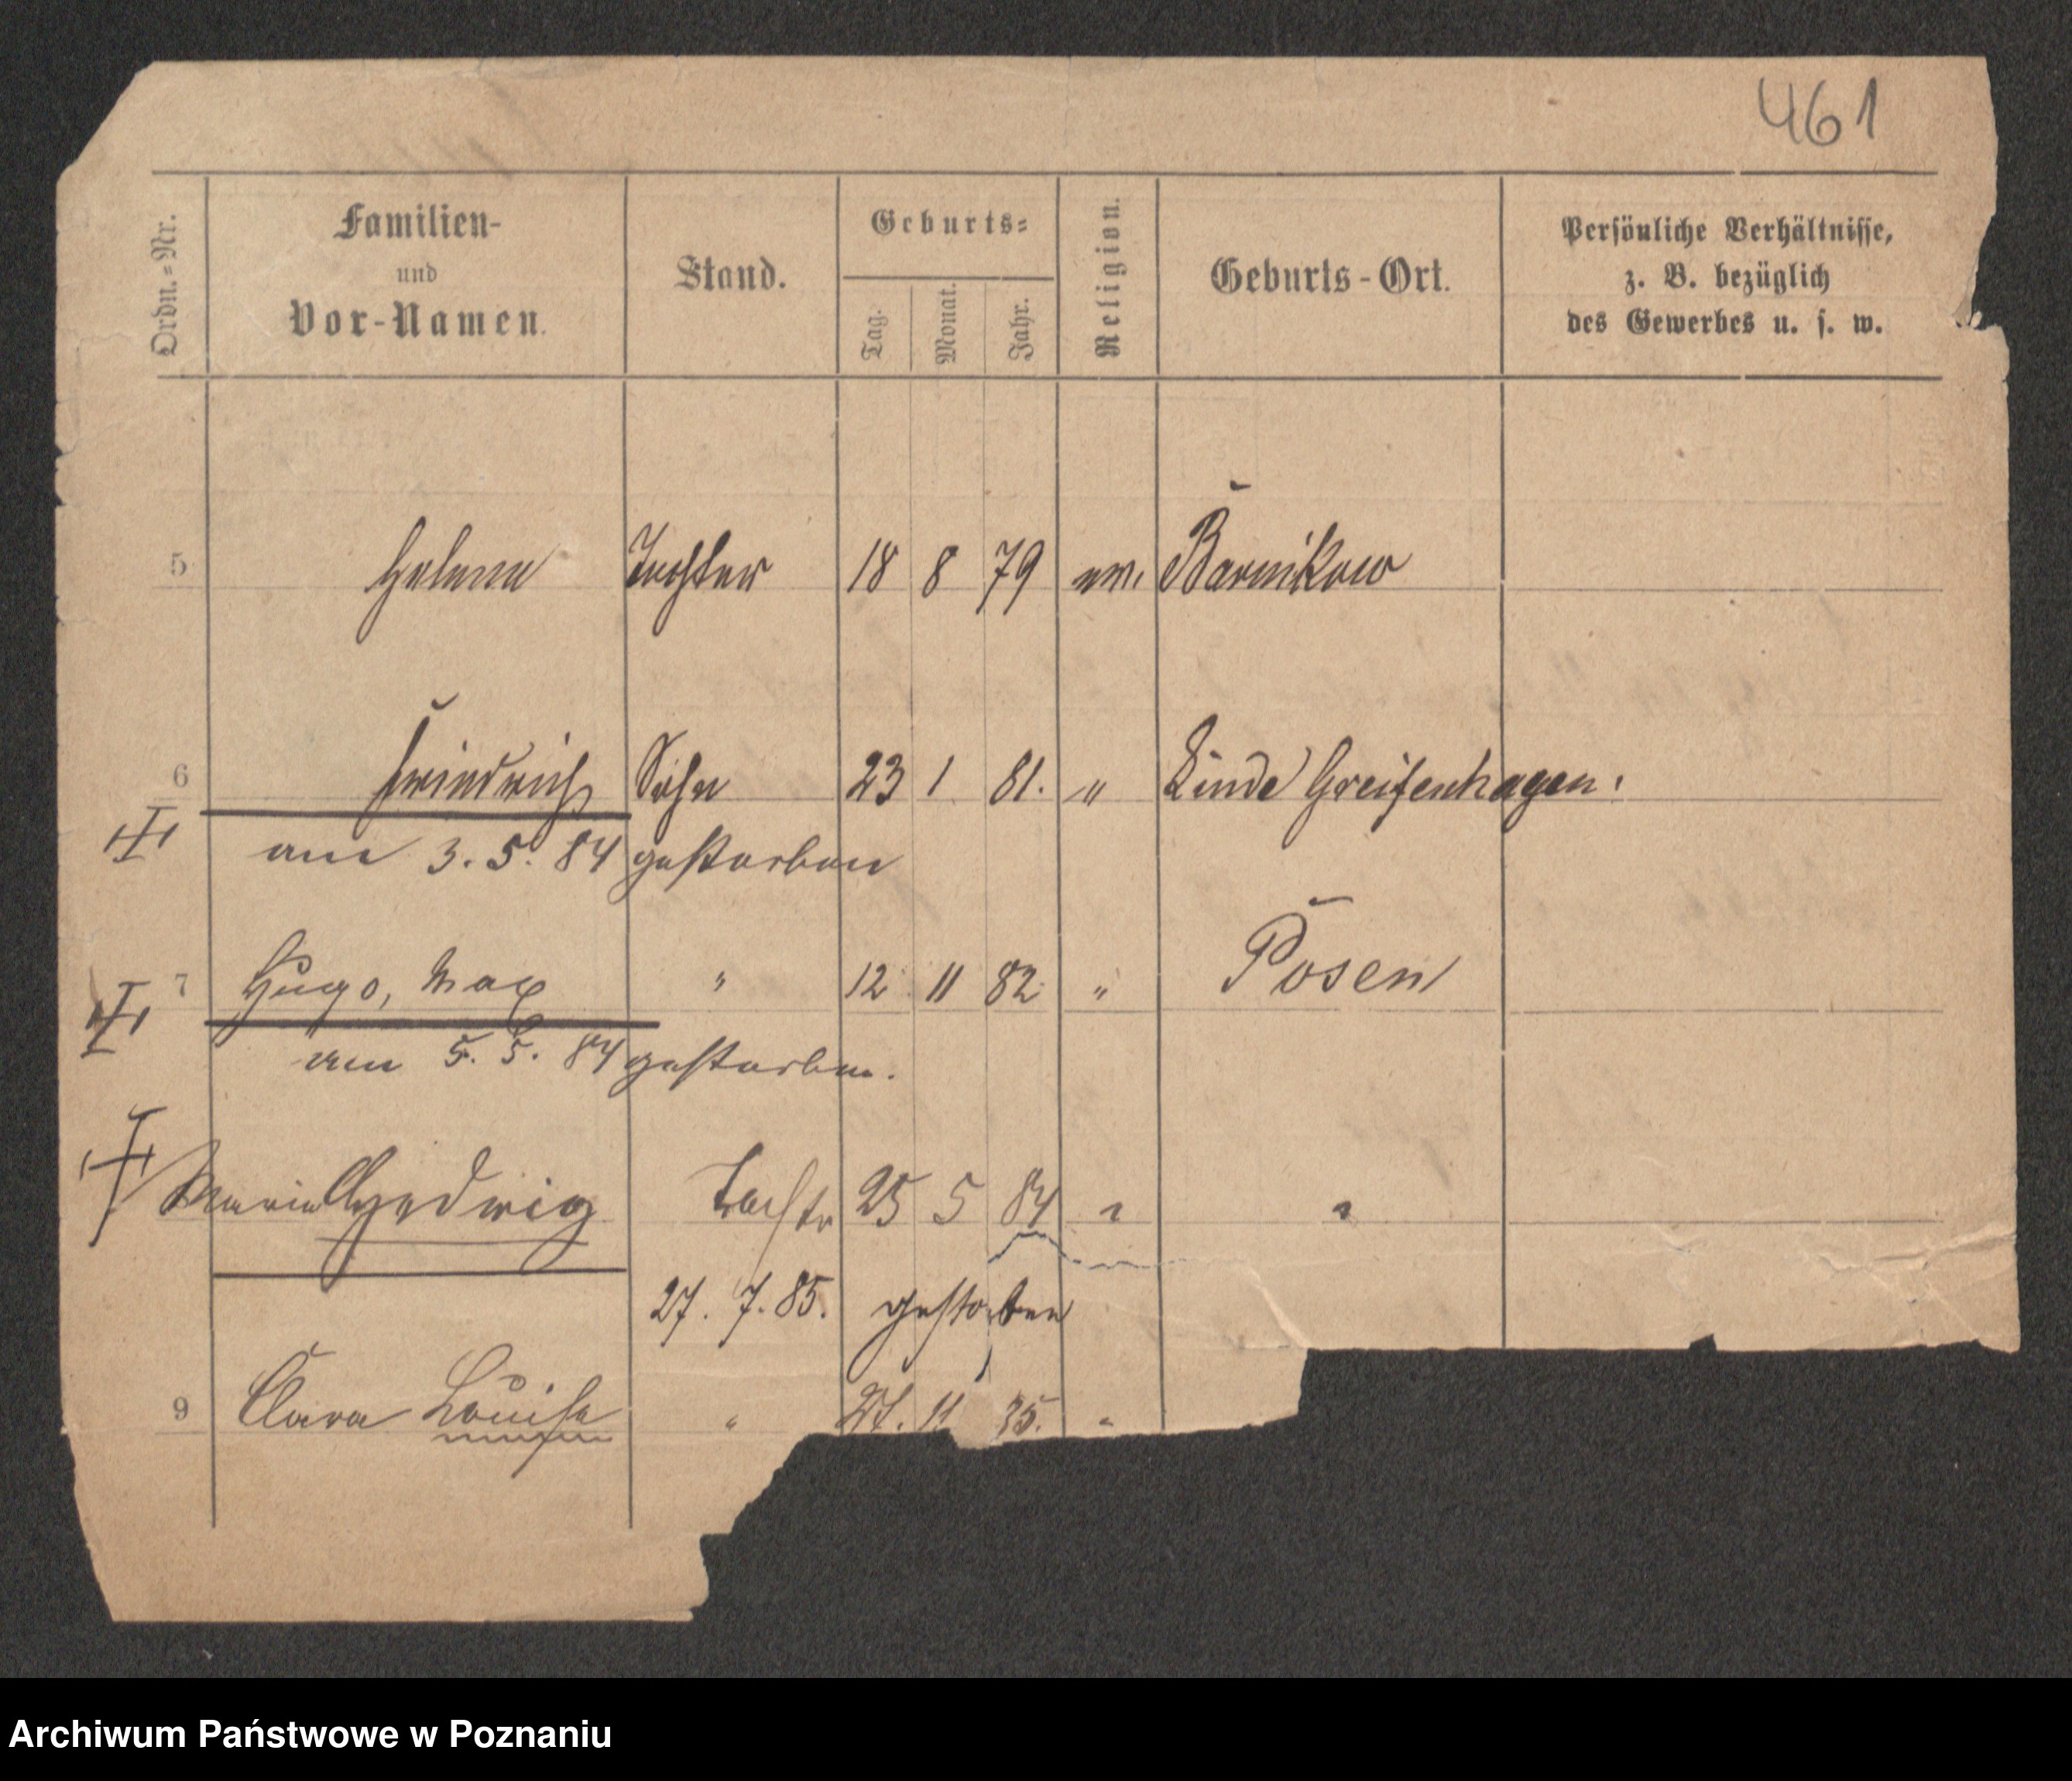 461
Ordn.-Nr.
Familien-
und
Vor-Namen.
Stand.
Geburts-
Tag.
Monat.
Jahr.
Religion.
Geburts-Ort.
Persönliche Verhältnisse,
z. B. bezüglich
des Gewerbes u. s. w.
5 Helene Tochter 18 8 79 ev. Barnikow
6 Friedrich Sohn 23 1 81. " Linde Greifenhagen.
am 3. 5. 84 gestorben
7 Hugo, Max " 12 11 82 " Posen
am 5. 5. 84 gestorben.
Marie Hedwig Tochtr 25 5 84 " "
27. 7. 85. gestorben
9 Clara Louise " 27. 11 85. "
Archiwum Państwowe w Poznaniu